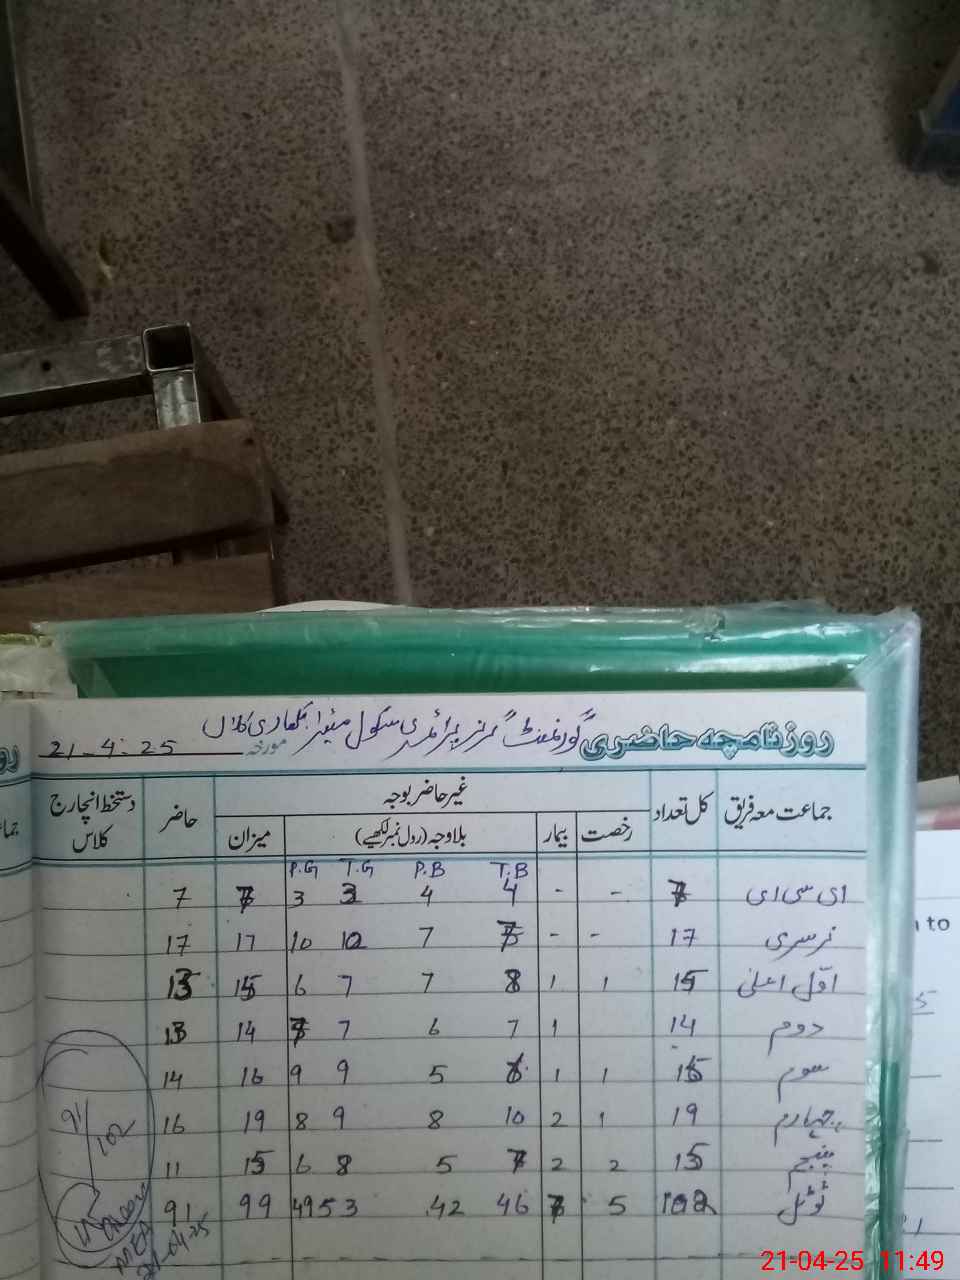 روزنامچہ حاضری گورنمنٹ گرلز پرائمری سکول میرا کلاں مورخہ 21-4-25
جماعت معہ فریق کل تعداد غیر حاضر بوجہ حاضر دستخط انچارج کلاس
رخصت بیمار بلاوجہ (رول نمبر لکھیے) میزان
T.B P.B T.G P.G
ای سی ای 7 - - 4 4 3 3 7 7
نرسری 17 - - 7 7 10 10 17 17
اول اعلیٰ 15 1 1 8 7 7 6 15 13
دوم 14 1 7 6 7 7 14 13
سوم 16 1 1 5 9 9 16 14
چہارم 19 1 2 10 8 9 8 19 16
پنجم 15 2 2 7 5 8 6 15 11
ٹوٹل 102 5 7 46 42 53 49 99 91
91/102
21-04-25
21-04-25 11:49